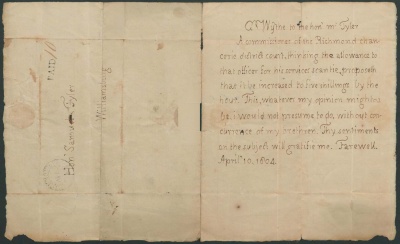 PAID
Hon'. Samuel Tyler
Williamsburg
G. Wythe to the hon'. mr Tyler
A commissioner of the Richmond chan-
cerie district court, thinking the allowance to
that officer for his services scantie, proposeth
that it be increased to two shillings by the
hour. This, whatever my opinion might
be, i would not presume to do, without con-
currence of my brethren. Thy sentiments
on the subject will gratifie me. Farewell.
April, 10, 1804.